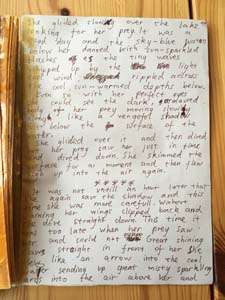 She glided slowly over the lake
looking for her prey. It was a
day and the sky-blue
below her danced with sun-sparkled
splashes of the tiny waves
whipped up by the light
wind rippled across
cool, sun-warmed depths below.
so with her perfect eyes
she could see the dark,
of her prey moving slowly
like a vengeful
below the surface of the
She glided over it and then dived
her prey saw her just in time
and dived down. She skimmed the
surface for a moment and then flew
up into the air again.
*****
It was not until an hour later that
again saw the shadow and this
time she was more careful. Without
her wings slipped back and,
dive straight down. This time it
too late when her prey saw
her and could not Great shining
straight in front of her
like an arrow into the cool
sending up spent misty sparkling
into the air above her and